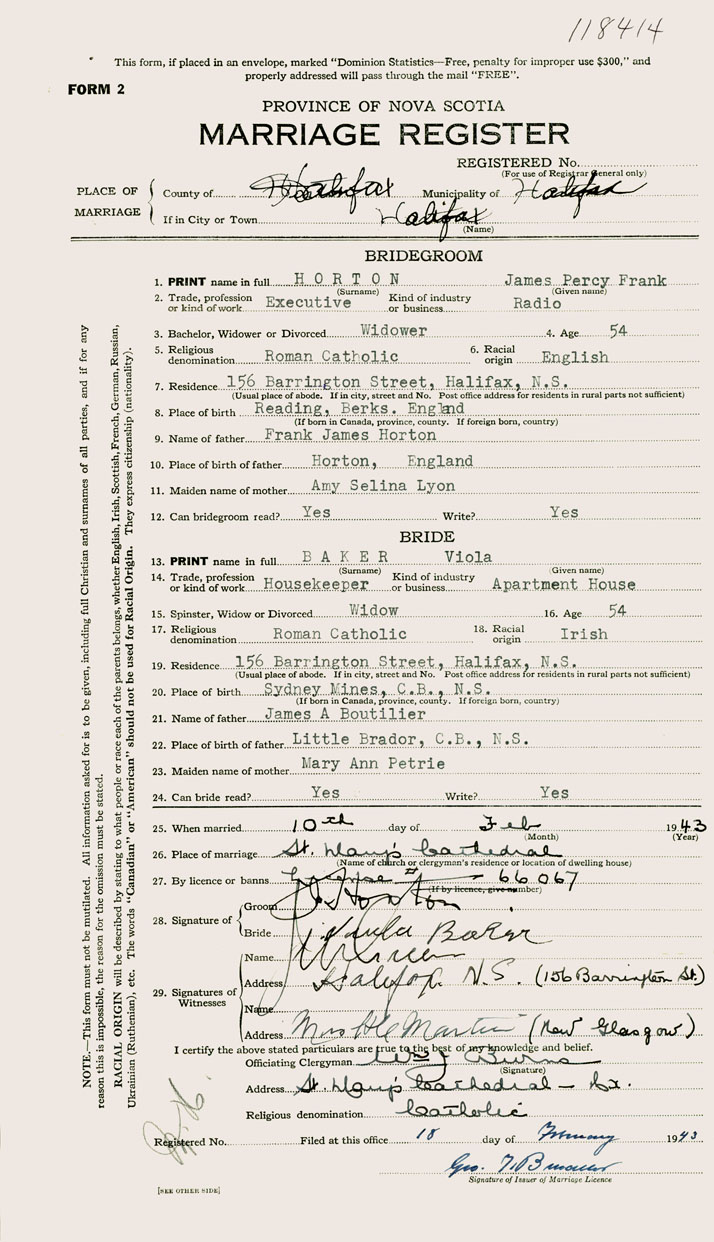 118414
This form, if placed in an envelope, marked "Dominion Statistics—Free, penalty for improper use $300," and
properly addressed will pass through the mail "FREE".
FORM 2
PROVINCE OF NOVA SCOTIA
MARRIAGE REGISTER
REGISTERED No.
(For use of Registrar General only)
PLACE OF MARRIAGE
County of Halifax Municipality of Halifax
If in City or Town Halifax
(Name)
BRIDEGROOM
1. PRINT name in full HORTON James Percy Frank
(Surname) (Given name)
2. Trade, profession or kind of work Executive Kind of industry or business Radio
3. Bachelor, Widower or Divorced Widower 4. Age 54
5. Religious denomination Roman Catholic 6. Racial origin English
7. Residence 156 Barrington Street, Halifax, N.S.
(Usual place of abode. If in city, street and No. Post office address for residents in rural parts not sufficient)
8. Place of birth Reading, Berks. England
(If born in Canada, province, county. If foreign born, country)
9. Name of father Frank James Horton
10. Place of birth of father Horton, England
11. Maiden name of mother Amy Selina Lyon
12. Can bridegroom read? Yes Write? Yes
BRIDE
13. PRINT name in full BAKER Viola
(Surname) (Given name)
14. Trade, profession or kind of work Housekeeper Kind of industry or business Apartment House
15. Spinster, Widow or Divorced Widow 16. Age 54
17. Religious denomination Roman Catholic 18. Racial origin Irish
19. Residence 156 Barrington Street, Halifax, N.S.
(Usual place of abode. If in city, street and No. Post office address for residents in rural parts not sufficient)
20. Place of birth Sydney Mines, C.B., N.S.
(If born in Canada, province, county. If foreign born, country)
21. Name of father James A Boutilier
22. Place of birth of father Little Brador, C.B., N.S.
23. Maiden name of mother Mary Ann Petrie
24. Can bride read? Yes Write? Yes
25. When married 10th day of Feb 1943
(Month) (Year)
26. Place of marriage St. Mary's Cathedral
(Name of church or clergyman's residence or location of dwelling house)
27. By licence or banns License # — 66067
(If by licence, give number)
28. Signature of
Groom Horton
Bride Viola Baker
29. Signatures of Witnesses
Name
Address Halifax N.S. (156 Barrington St.)
Name
Address Mrs Martin (New Glasgow)
I certify the above stated particulars are true to the best of my knowledge and belief.
Officiating Clergyman Burns
(Signature)
Address St. Mary's Cathedral — Hx.
Religious denomination Catholic
Registered No. Filed at this office 18 day of February 1943
Geo.
Signature of Issuer of Marriage Licence
[SEE OTHER SIDE]
NOTE.—This form must not be mutilated. All information asked for is to be given, including full Christian and surnames of all parties, and if for any
reason this is impossible, the reason for the omission must be stated.
RACIAL ORIGIN will be described by stating to what people or race each of the parents belongs, whether English, Irish, Scottish, French, German, Russian,
Ukrainian (Ruthenian), etc. The words "Canadian" or "American" should not be used for Racial Origin. They express citizenship (nationality).